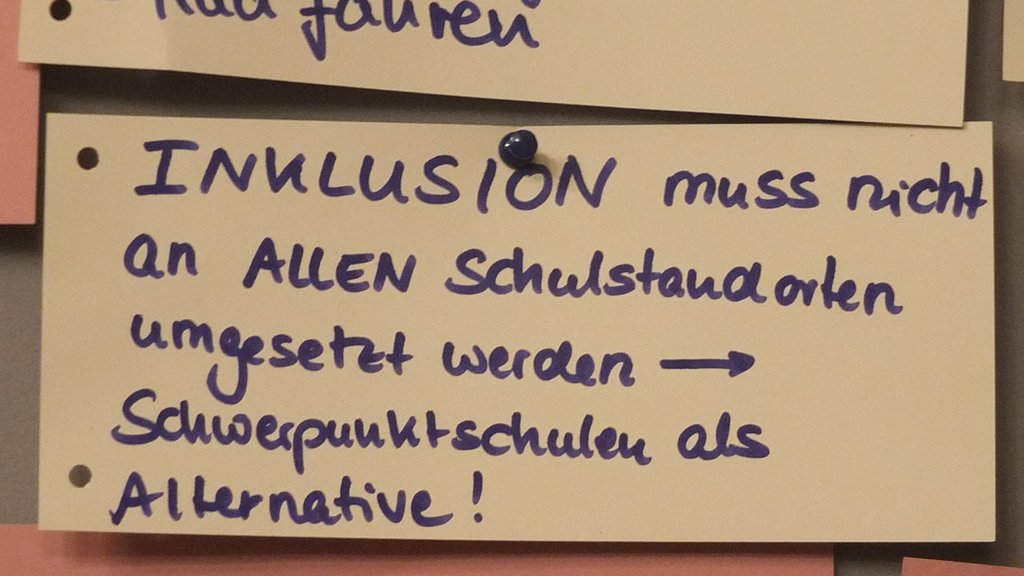 Rad fahren
INKLUSION muss nicht
an ALLEN Schulstandorten
umgesetzt werden →
Schwerpunktschulen als
Alternative!